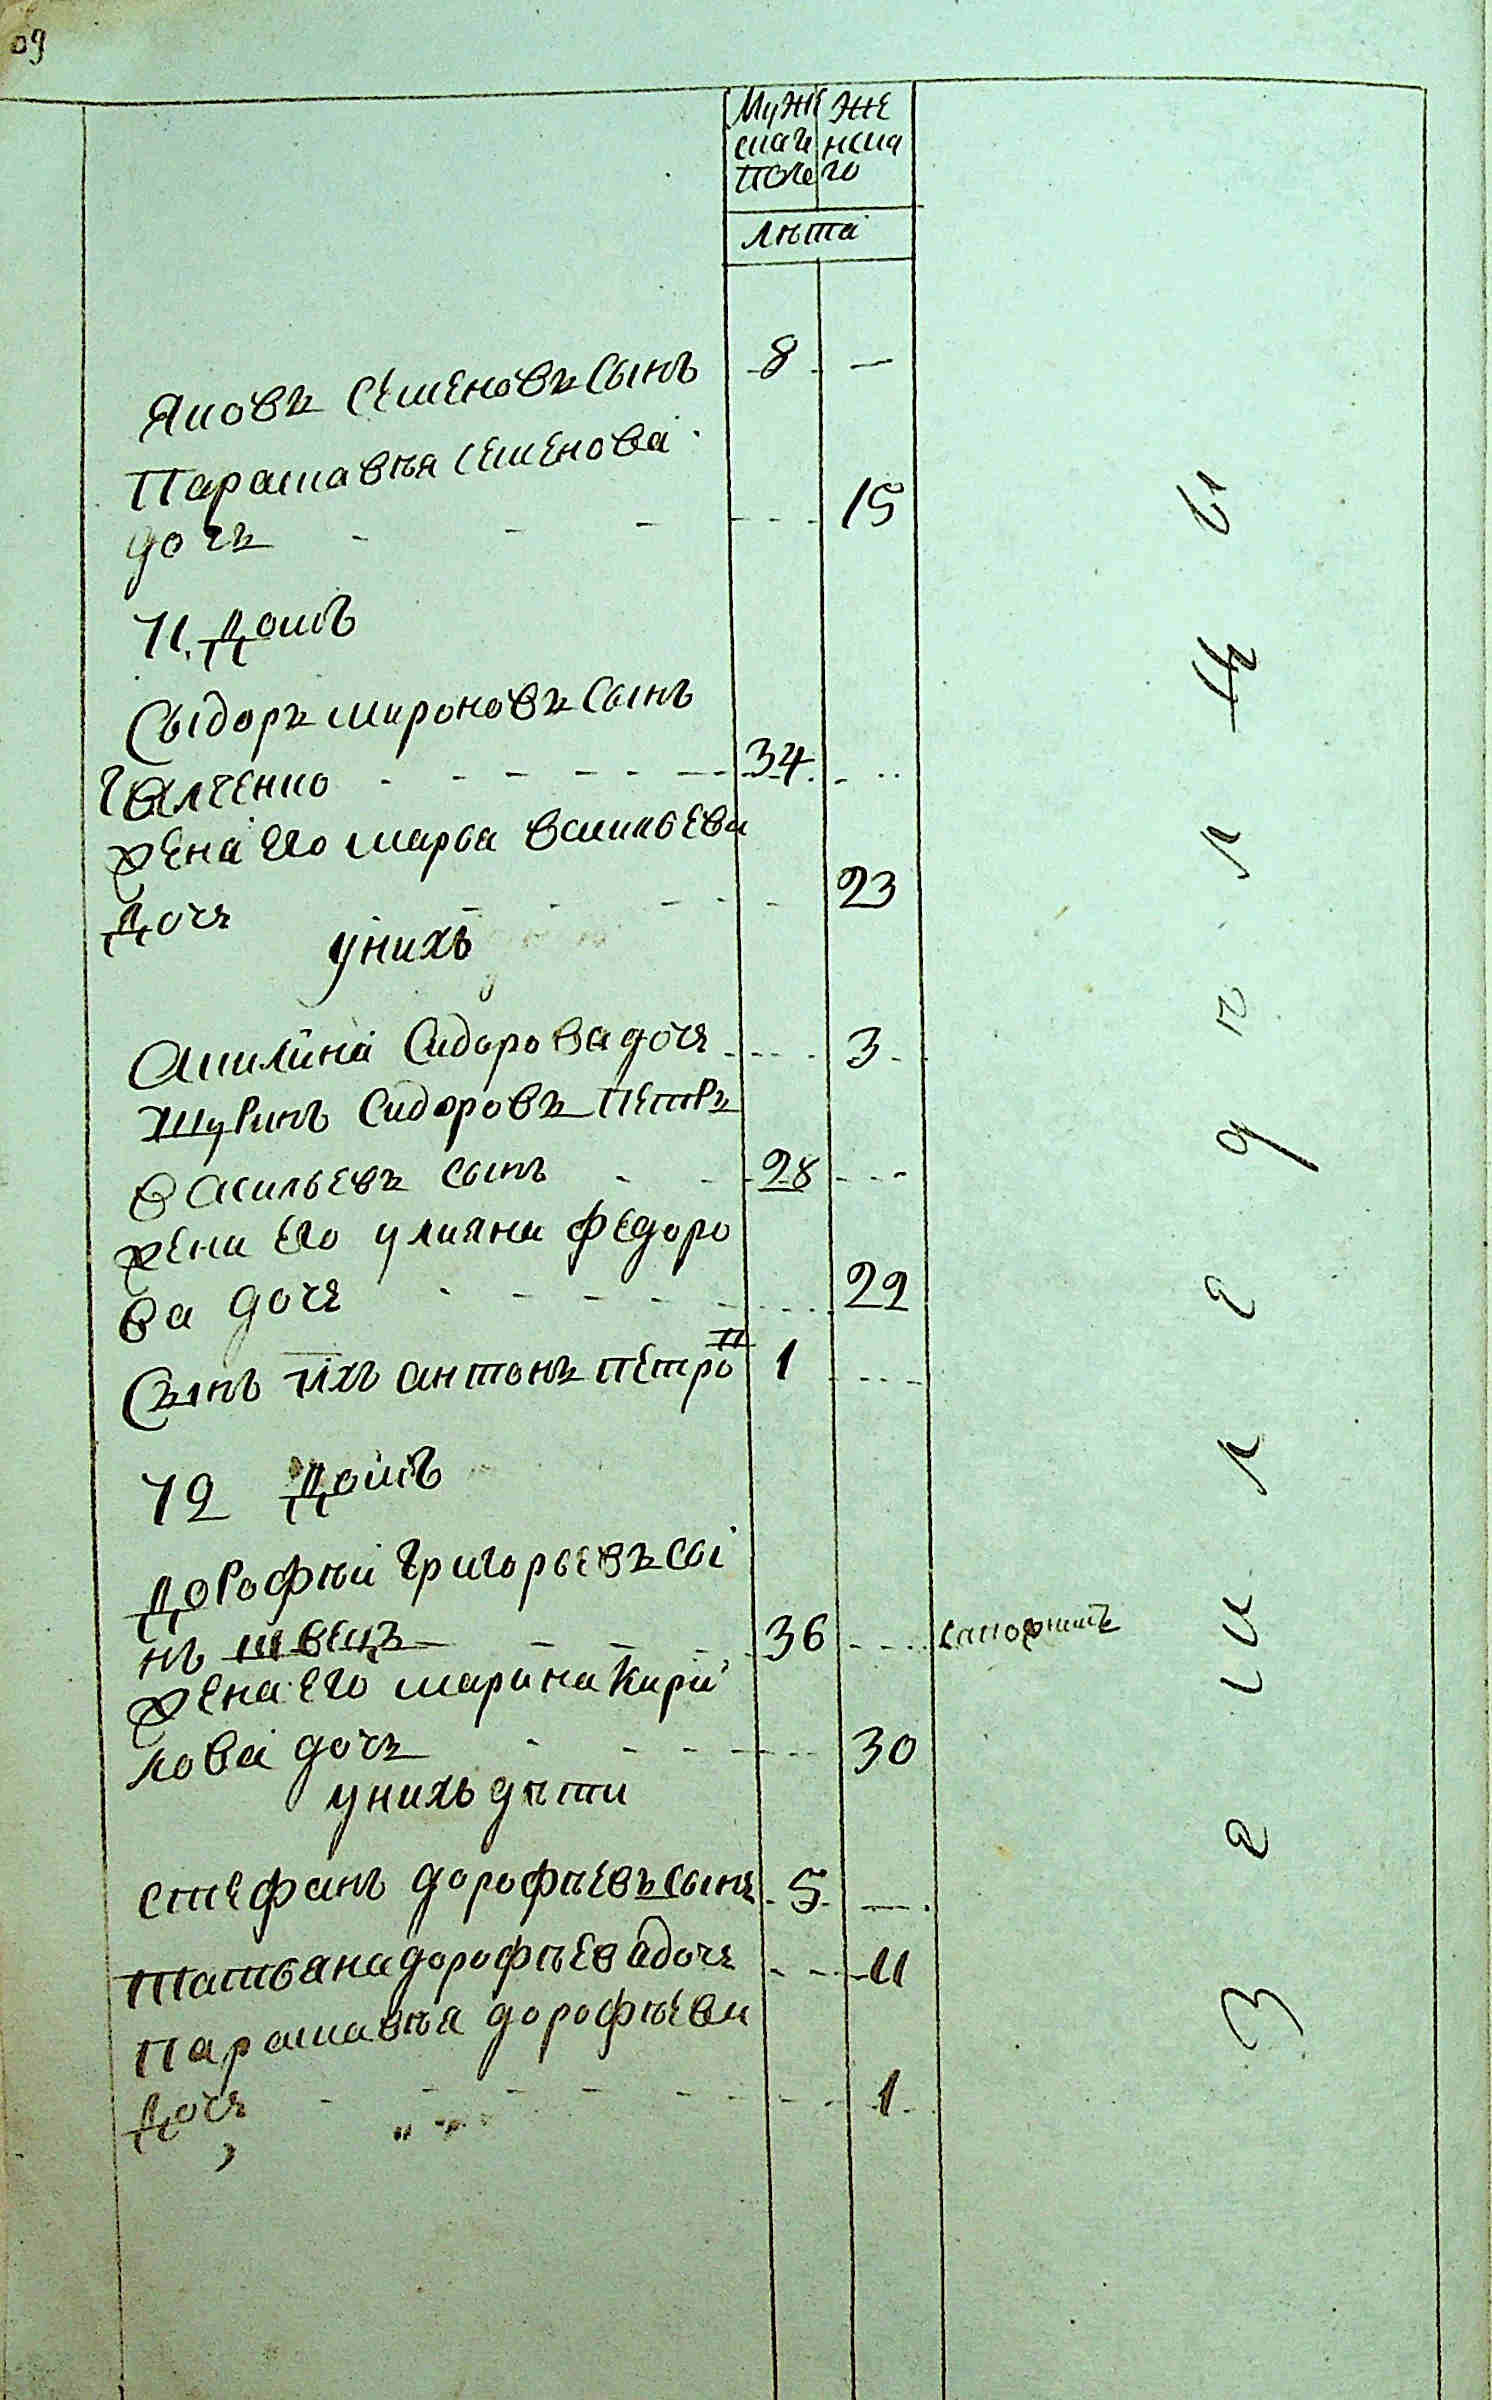 09
Муже Же
скаго нска
пола го
лѣта
Яковъ Семеновъ сынъ 8 —
Параскавѣя Семенова
дочъ 15
71. Домъ
Сыдоръ Мироновъ сынъ
34
жена его Марья Васильева
дочь 23
у нихъ
Акилина Сидорова дочь 3
Шуринъ Сидоровъ Петръ
Васильевъ сынъ 28
жена его Улияна Федоро
ва дочь 22
Сынъ ихъ Антонъ Петро 1
72 Домъ
Дорофѣй Григорьевъ сы
нъ Швецъ 36
жена его Марина Кири
лова дочъ 30
у нихъ дѣти
Стефанъ Дорофѣевъ сынъ 5 —
Татьяна Дорофѣева дочь 11
Параскавѣя Дорофѣева
дочь 1